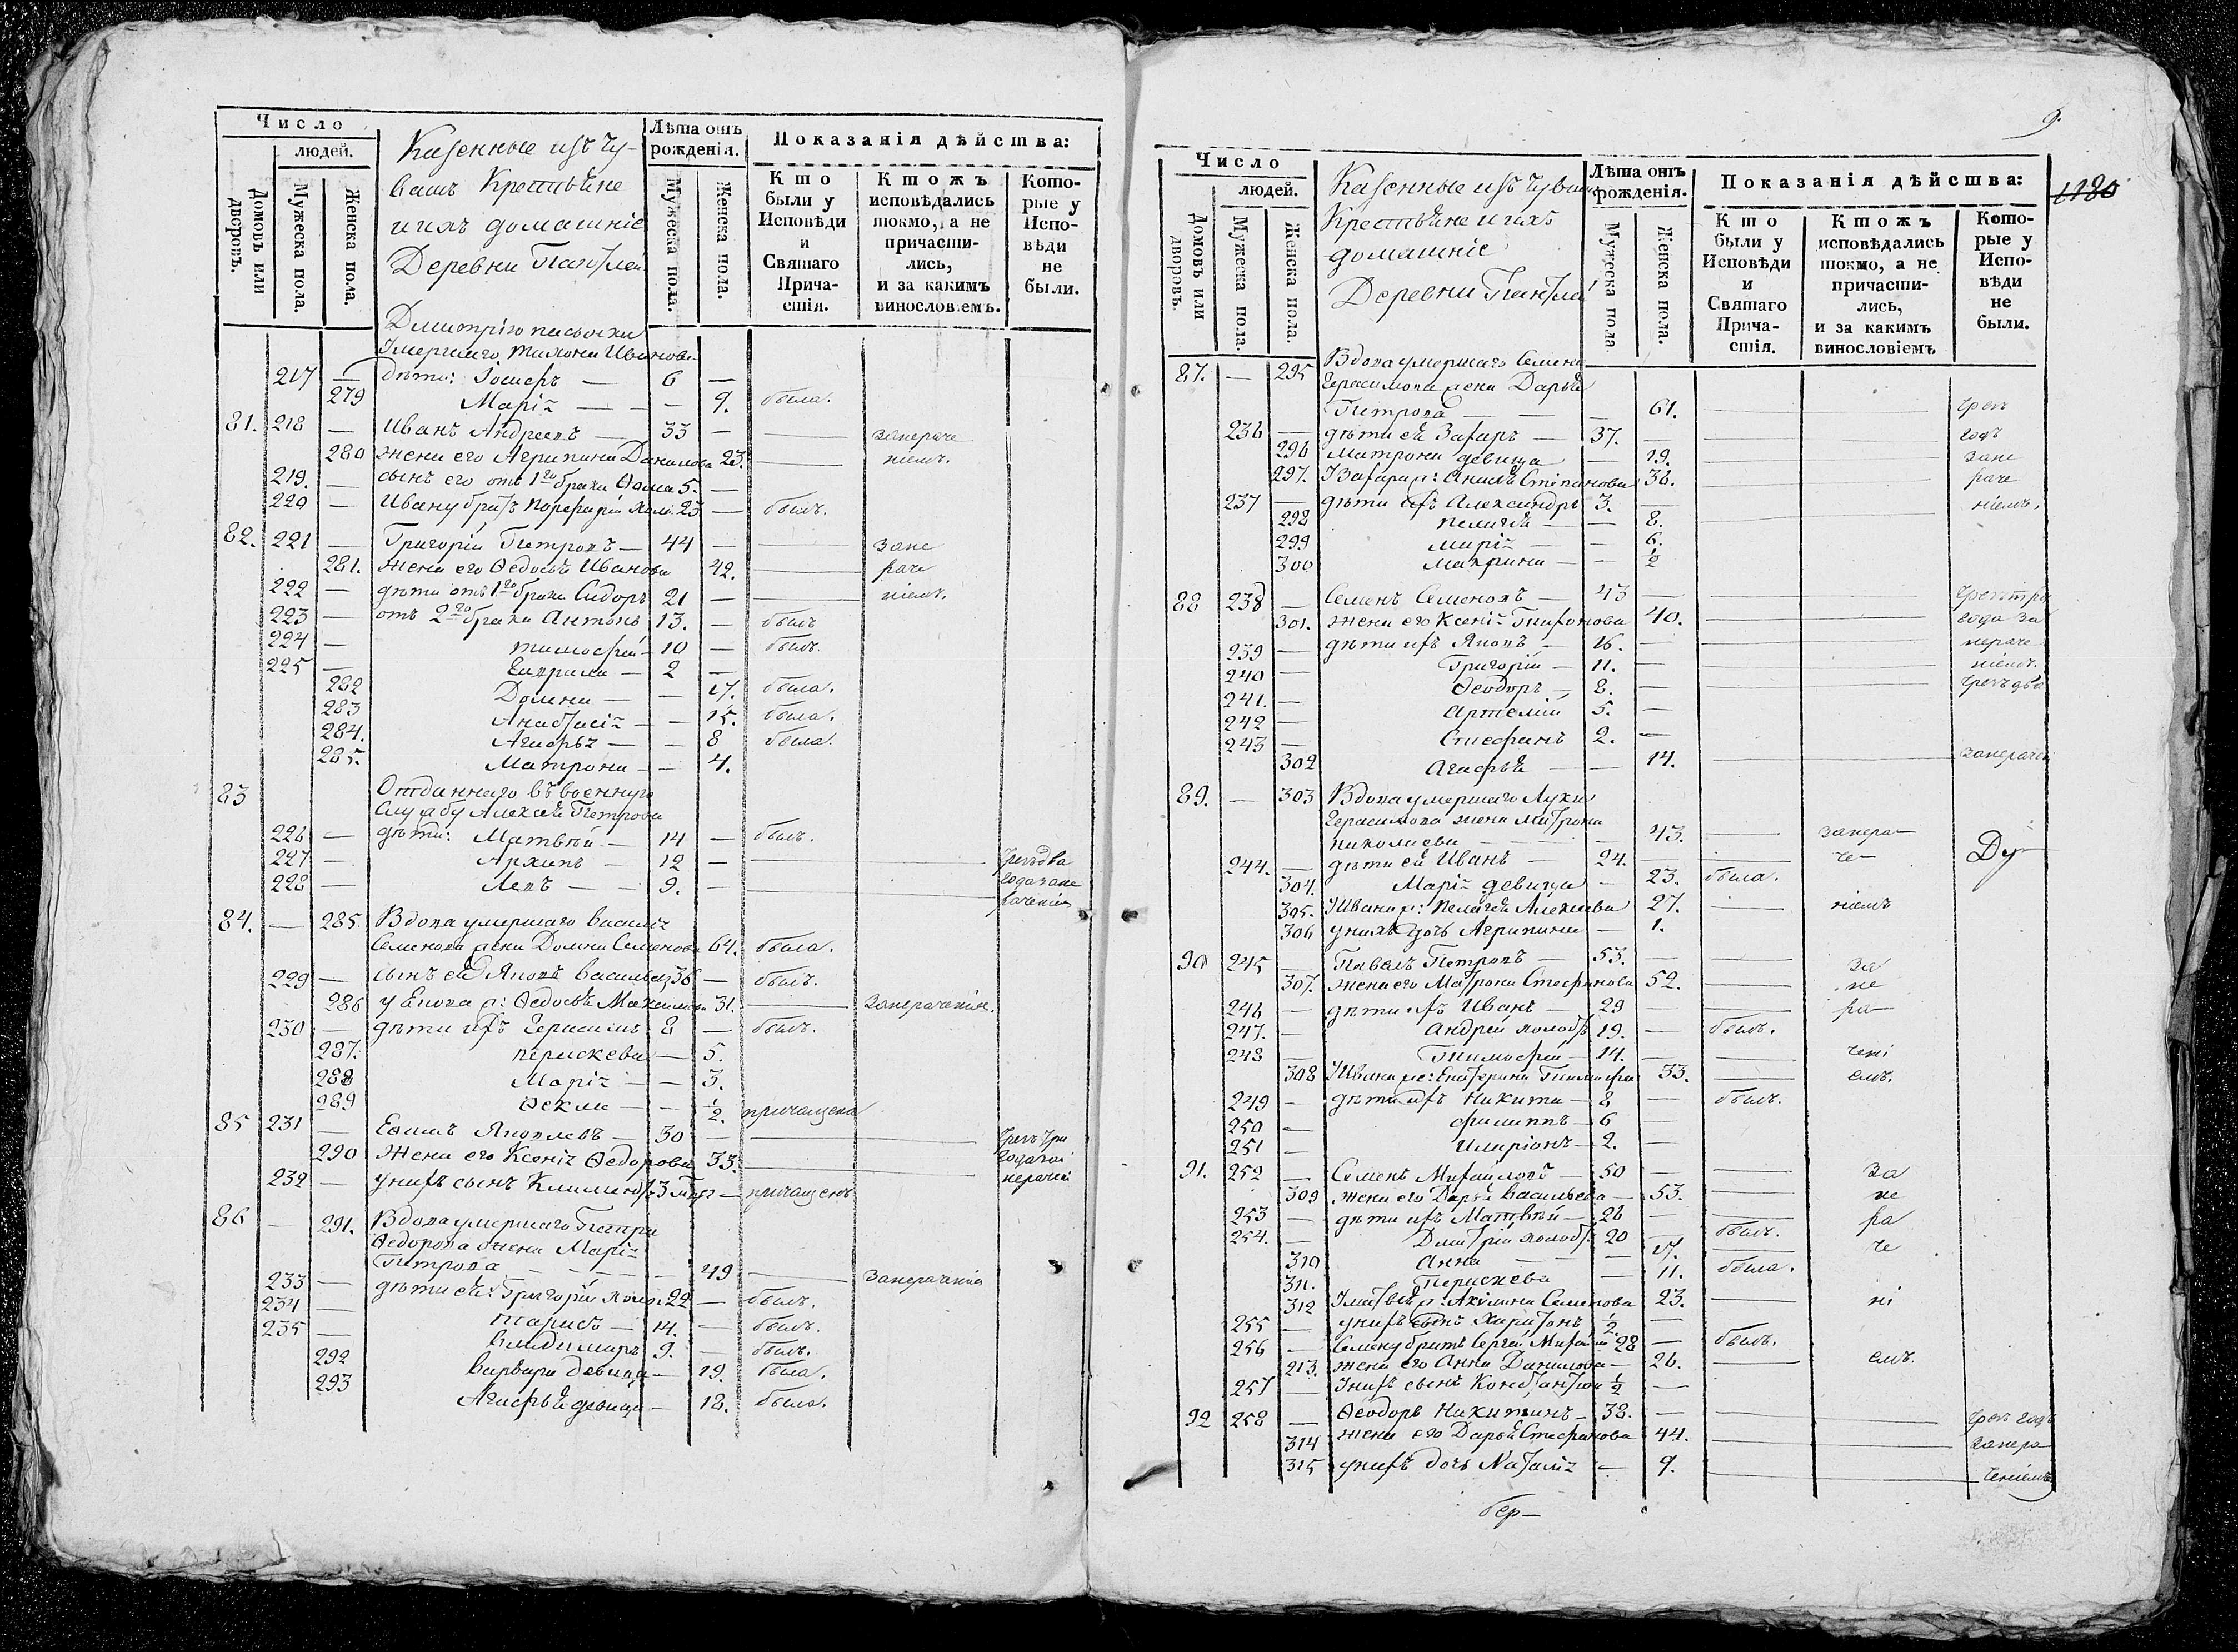 Число
людей.
Домовъ или дворовъ.
Мужеска пола.
Женска пола.
Казенные изъ Чу-
вашъ Крестьяне
и ихъ домашніе
Деревни
Лѣта отъ рожденія.
Мужеска пола.
Женска пола.
Показанія дѣйства:
Кто были у Исповѣди и Святаго Причастія.
Ктожъ исповѣдались токмо, а не причастились, и за какимъ винословіемъ.
Которые у Исповѣди не были.
Дмитрію пасынки
Умершаго Тимофея Иванова
217 — дѣти: Іосифъ — 6 —
279 Марія — — 9. была.
81. 218 — Иванъ Андреевъ — 33 — — занераче
280 жена его Агрипина Данилова 23. — ніемъ.
219. — сынъ его отъ 1го брака Ѳома 5. —
220 — Ивану братъ Порфирій холо: 23 — былъ.
82. 221 — Григорій Петровъ — 44 — — зане
281. жена его Ѳедосья Иванова 42. — раче
222 — дѣти отъ 1го брака Сидоръ 21 — — ніемъ.
223 — отъ 2го брака Антонъ 13. — былъ
224 — Тимофей — 10 — былъ.
225 — — 2 —
282 Домна — — 17. была.
283 Анастасія — — 15. была.
284. Агафья — — 8 была.
285. Матрона — — 4.
83 Отданнаго въ военную
службу Алексея Петрова
226 — дѣти: Матвѣй — 14 — былъ.
227 — Архипъ — 12 — — — чрезъ два
228 — Левъ — — 9. — — — года зане
раченіемъ
84. — 285 Вдова умершаго Василія
Семенова жена Домна Семенова 64. была.
229 — сынъ ея Яковъ Васильевъ 36 — былъ.
286 у Якова ж: Ѳедосья Максимова 31. — Занераченіемъ.
230 — дѣти ихъ Герасимъ 8 — былъ.
287. Параскева — 5.
288 Марія — — 3.
289 Ѳекла — — ½. причащена
85 231 — Яковлевъ — 30 — — — чрезъ три
290 Жена его Ксенія Ѳедорова 33. — года за
232 — у нихъ сынъ Климентъ 3 — причащенъ нераче
86 — 291. Вдова умершаго Петра
Ѳедорова жена Марія
Петрова — — — 49 — Занераченіемъ
233 — дѣти ея: Григорій холо: 22 — былъ.
234 — Тарасъ — 14. — былъ.
235 — Владимиръ 9. — былъ.
292 Варвара девица — 19. была.
293 Агафья девица — 18. была.
9.
1180
Число
людей.
Домовъ или дворовъ.
Мужеска пола.
Женска пола.
Казенные изъ Чувашъ
Крестьяне и ихъ
домашніе
Деревни
Лѣта отъ рожденія.
Мужеска пола.
Женска пола.
Показанія дѣйства:
Кто были у Исповѣди и Святаго Причастія.
Ктожъ исповѣдались токмо, а не причастились, и за какимъ винословіемъ
Которые у Исповѣди не были.
87. — 295 Вдова умершаго Семена
Герасимова жена Дарья
Петрова — — — 61. — — чрезъ
236 — дѣти ея Захаръ — 37. — — — годъ
296 Матрона девица — 19. — — зане
297. У Захара ж: Анисья Степанова 36. — — раче
237 — дѣти ихъ Александръ 3. — — ніемъ.
298 Пелагея — — 8.
299 Марія — — 6.
300 Макрина — — ½
88 238 — Семенъ Семеновъ — 43 — — — чрезъ три
301. жена его Ксенія Тихонова 40. — — года за
239 — дѣти ихъ Яковъ — 16. — — — нераче
240 — Григорій — 11. — — — ніемъ.
241. — Ѳеодоръ — 8. — — — чрезъ два
242 — Артемій 5. —
243 — Стефанъ 2. —
302 Агафья — — 14. — — занераче
89. — 303 Вдова умершаго Луки
Герасимова жена Матрона
Николаева — — — 43. — занера —
244. — дѣти ея Иванъ — 24. — — че —
304. Марія девица — 23. была.
305. У Ивана ж: Пелагея Алексеева 27. — ніемъ
306 у нихъ дочь Агрипина — 1.
Ду —
90 245 — Павелъ Петровъ — 53. — — За
307. жена его Матрона Стефанова 52. — не
246 — дѣти ихъ Иванъ — 29 — — ра —
247. — Андрей холостъ 19. — былъ.
248 — Тимофей — 14. — — чені
308 У Ивана ж: Екатерина Тимофеева 33. — емъ.
249 — дѣти ихъ Никита — 8 — былъ.
250 — Филиппъ — 6 —
251 — Иларіонъ — 2. —
91. 252 — Семенъ Михайловъ — 50 — — За
309 жена его Дарья Васильева — 53. — не
253 — дѣти ихъ Матвѣй — 26 — — ра
254. — Дмитрій холостъ 20 — былъ.
310 Анна — — 17. — че
311. Параскева — 11. была.
312 У Матвѣя ж: Акилина Семенова 23. — ні
255 — у нихъ сынъ Харитонъ ½ —
256 — Семену братъ Сергей Михайловъ 28 — былъ.
213. жена его Анна Данилова — 26. — емъ.
257 — У нихъ сынъ Константинъ ½ —
92 258 — Ѳеодоръ Никитинъ — 38. — — — чрезъ годъ
314 жена его Дарья Стефанова 44. — — Занера
315 у нихъ дочь Наталія — 9. — ченіемъ
бер —